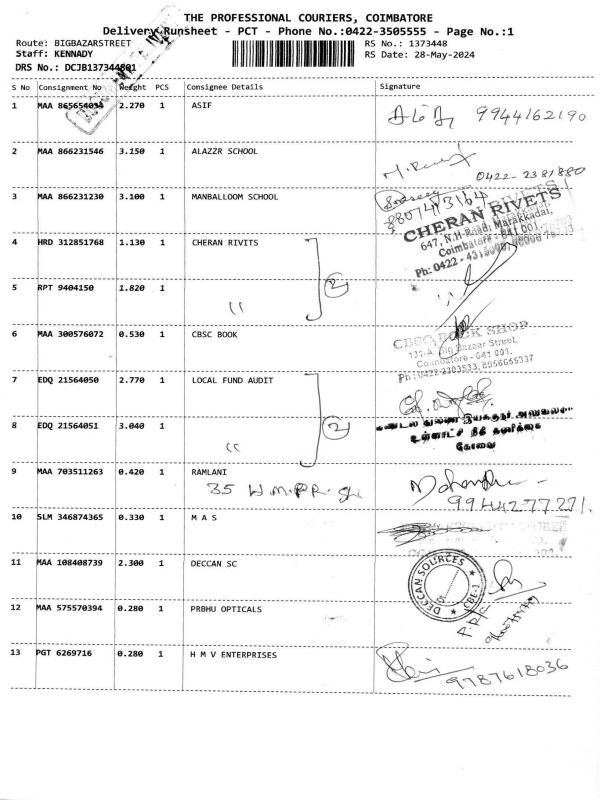 THE PROFESSIONAL COURIERS, COIMBATORE
Delivery Runsheet - PCT - Phone No.:0422-3505555 - Page No.:1
Route: BIGBAZARSTREET RS No.: 1373448
Staff: KENNADY RS Date: 28-May-2024
DRS No.: DCJB137344801
S No Consignment No Weight PCS Consignee Details Signature
1 MAA 865654034 2.270 1 ASIF 9944162190
2 MAA 866231546 3.150 1 ALAZZR SCHOOL
0422-2381880
3 MAA 866231230 3.100 1 MANBALLOOM SCHOOL 8807483164
CHERAN RIVETS
647, N.H.Road, Marakkadai,
Coimbatore - 641 001.
Ph: 0422 -
4 HRD 312851768 1.130 1 CHERAN RIVITS
2
5 RPT 9404150 1.820 1 "
6 MAA 300576072 0.530 1 CBSC BOOK
CBSC BOOK SHOP
131-A, Big Bazaar Street,
Coimbatore - 641 001.
Ph: 0422-2303533, 8056655337
7 EDQ 21564050 2.770 1 LOCAL FUND AUDIT
மண்டல துணை இயக்குநர் அலுவலகம்
8 EDQ 21564051 3.040 1 2
உள்ளாட்சி நிதி தணிக்கை
"
கோவை
9 MAA 703511263 0.420 1 RAMLANI
35
99442-77271.
10 SLM 346874365 0.330 1 M A S
11 MAA 108408739 2.300 1 DECCAN SC
DECCAN SOURCES
CBE-1
12 MAA 575570394 0.280 1 PRBHU OPTICALS
13 PGT 6269716 0.280 1 H M V ENTERPRISES
9787618036